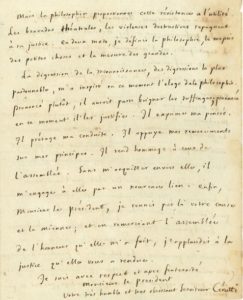 Mais le philosophe
cette résistance à l'utilité
Les bravades théatrales, les violences destructives répugnent
à sa justice. En deux mots, je définis la philosophie, le mépris
des petites choses et la mesure des grandes.
La digression de la reconnoissance, des digressions la plus
pardonnable, m'a inspiré en ce moment l'éloge de la philosophie
prononcé plutôt, il auroit paru briguer les suffrages; prononcé
en ce moment il les justifie. Il exprime ma pensée.
Il présage ma conduite. Il appuye mes remerciements
sur mes principes. Il rend hommage à ceux de
l'assemblée. Sans m'acquitter envers elle, il
m'engage à elle par un nouveau lien. Enfin,
Monsieur le président, je connois par le votre coeur
et le mien; et en remerciant l'assemblée
de l'honneur qu'elle m'a fait, j'applaudis à la
justice qu'elle vous a rendue.
Je suis avec respect et avec fraternité
monsieur le président
Votre très humble et très obéissant serviteur Cerutti